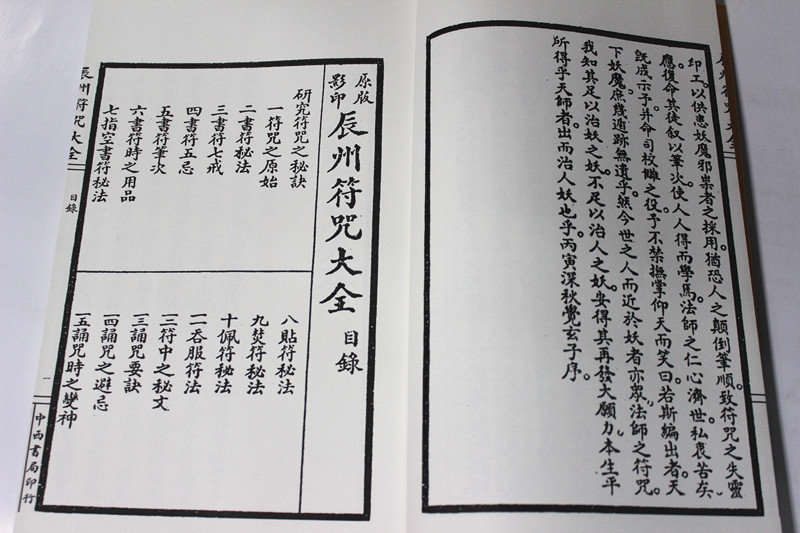 辰州符咒大全
印工。以供患妖魔邪祟者之採用。猶恐人之顛倒筆順。致符咒之失靈
應。復命其徒叙以筆次。使人人得而學焉。法師之仁心濟世。私衷苦矣。
既成示予。并命司校讎之役。予不禁撫掌仰天而笑曰。若斯編出者。天
下妖魔。庶幾遁跡無遺乎。然今世之人而近於妖者亦眾。法師之符咒。
我知其足以治妖之妖。不足以治人之妖。安得其再發大願力。本生平
所得乎天師者。出而治人妖也乎。丙寅深秋覺玄子序。
原版
影印
辰州符咒大全 目錄
研究符咒之秘訣
一符咒之原始
二書符秘法
三書符七戒
四書符五忌
五書符筆次
六書符時之用品
七指空書符秘法
八貼符秘法
九焚符秘法
十佩符秘法
一一吞服符法
一二符中之秘文
一三誦咒要訣
一四誦咒之避忌
一五誦咒時之變神
辰州符咒大全
目錄
一
中西書局印行